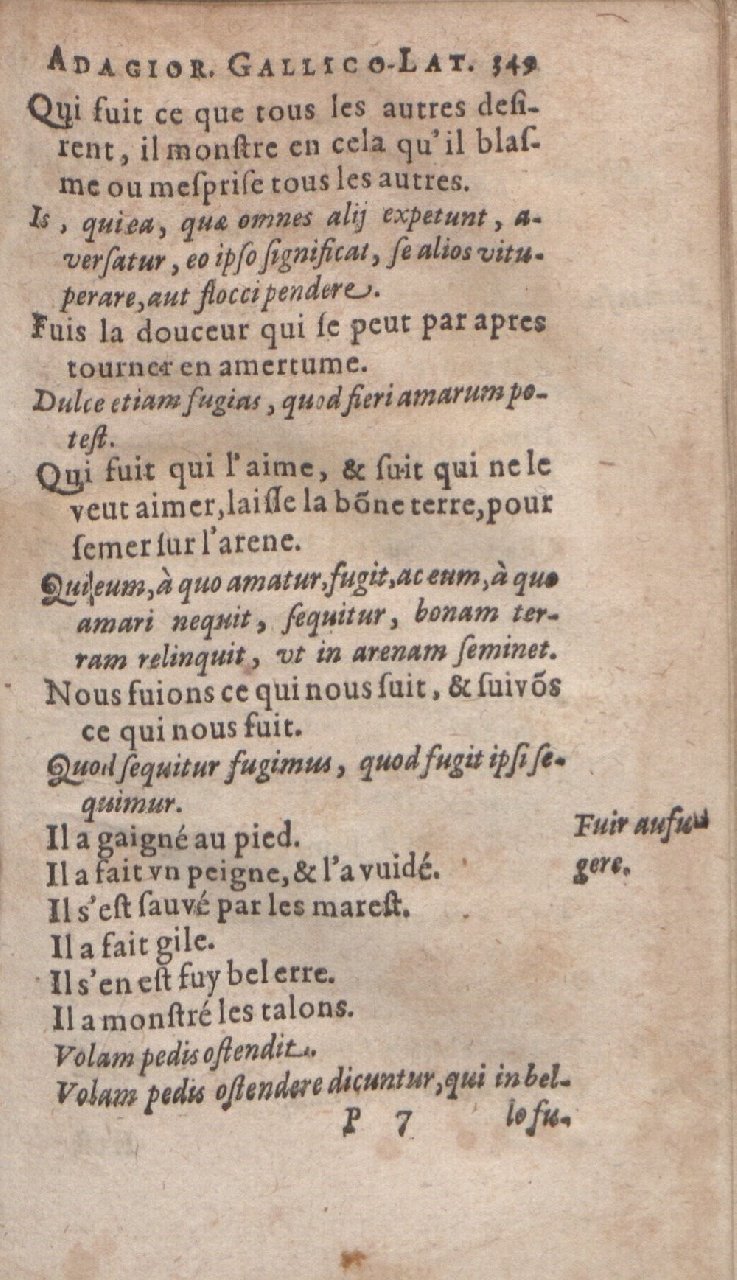 ADAGIOR. GALLICO-LAT. 349
Qui fuit ce que tous les autres desi-
rent, il monſtre en cela qu'il blaſ-
me ou meſpriſe tous les autres.
Is, qui ea, quæ omnes alij expetunt, a-
verſatur, eo ipſo ſignificat, ſe alios vitu-
perare, aut flocci pendere.
Fuis la douceur qui ſe peut par apres
tourner en amertume.
Dulce etiam fugias, quod fieri amarum po-
teſt.
Qui fuit qui l'aime, & ſuit qui ne le
veut aimer, laiſſe la bõne terre, pour
ſemer ſur l'arene.
Qui eum, à quo amatur, fugit, ac eum, à quo
amari nequit, ſequitur, bonam ter-
ram relinquit, vt in arenam ſeminet.
Nous fuions ce qui nous ſuit, & ſuivõs
ce qui nous fuit.
Quod ſequitur fugimus, quod fugit ipſi ſe-
quimur.
Il a gaigné au pied.
Il a fait vn peigne, & l'a vuidé.
Il s'eſt ſauvé par les mareſt.
Il a fait gile.
Il s'en eſt fuy bel erre.
Il a monſtré les talons.
Volam pedis oſtendit.
Volam pedis oſtendere dicuntur, qui in bel-
P 7 lo fu-
Fuir aufu-
gere.